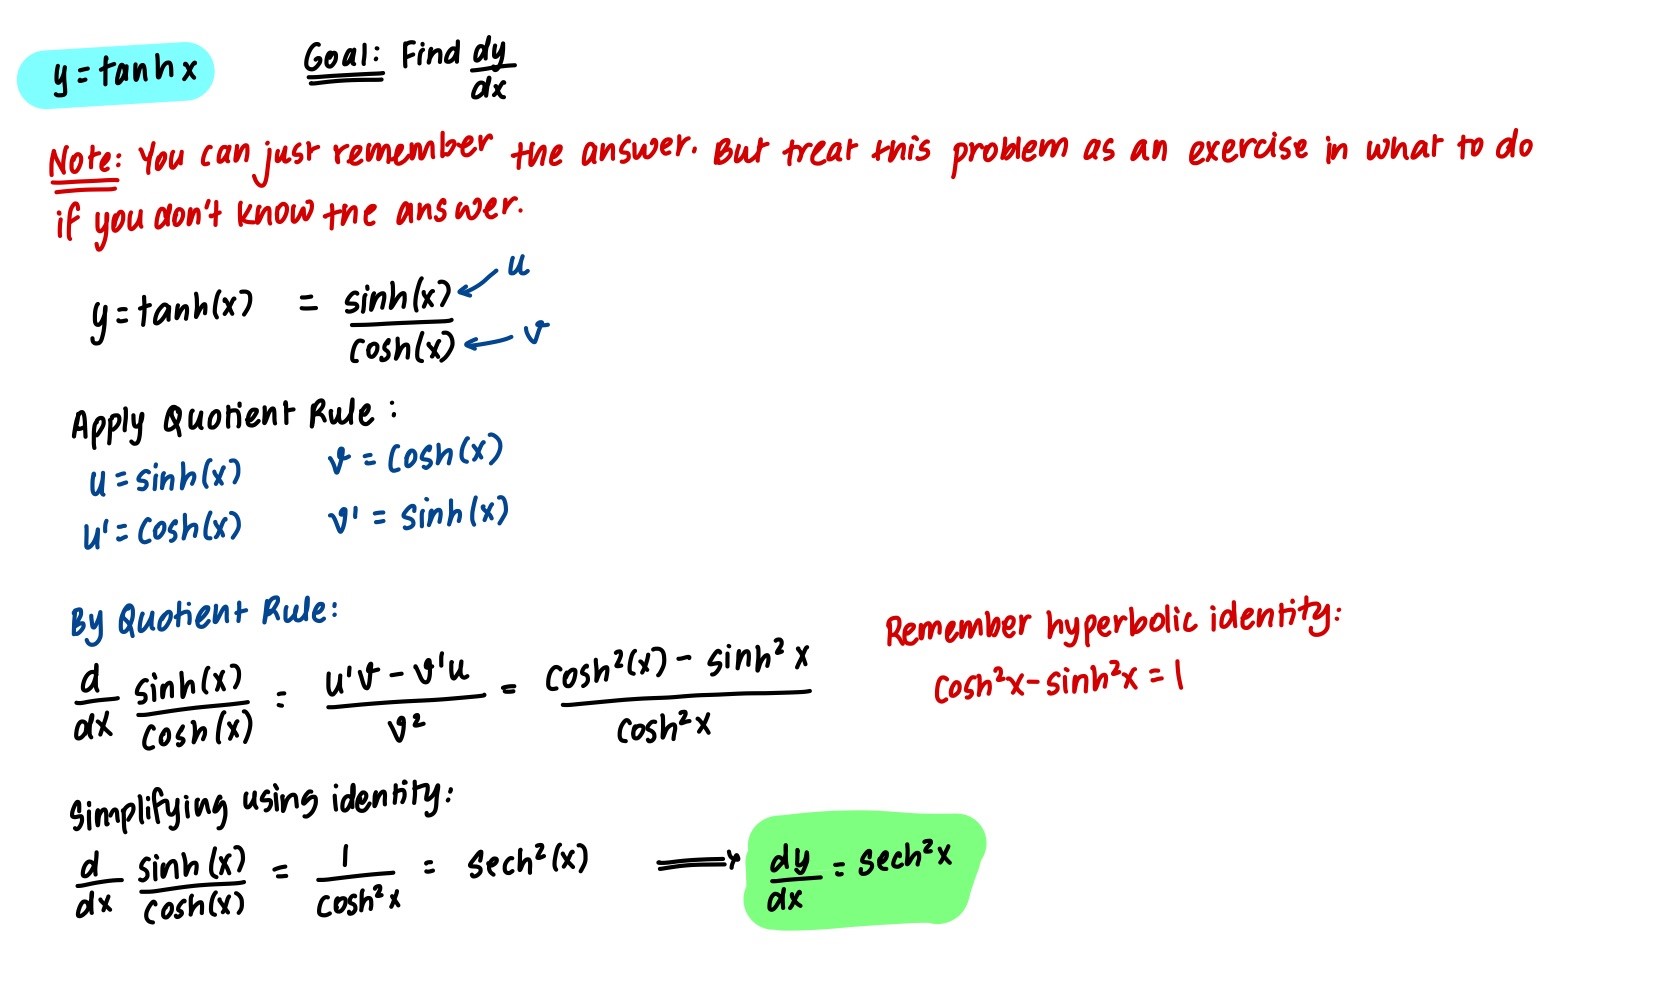 y = tanh x    Goal: Find dy/dx
Note: You can just remember the answer. But treat this problem as an exercise in what to do
if you don't know the answer.
y = tanh(x) = sinh(x)/cosh(x) ← u ← v
Apply Quotient Rule:
u = sinh(x)    v = cosh(x)
u' = cosh(x)    v' = sinh(x)
By Quotient Rule:
d/dx sinh(x)/cosh(x) = (u'v - v'u)/v² = (cosh²(x) - sinh² x)/cosh² x
Remember hyperbolic identity:
cosh²x - sinh²x = 1
Simplifying using identity:
d/dx sinh(x)/cosh(x) = 1/cosh²x = sech²(x) ⟹ dy/dx = sech²x